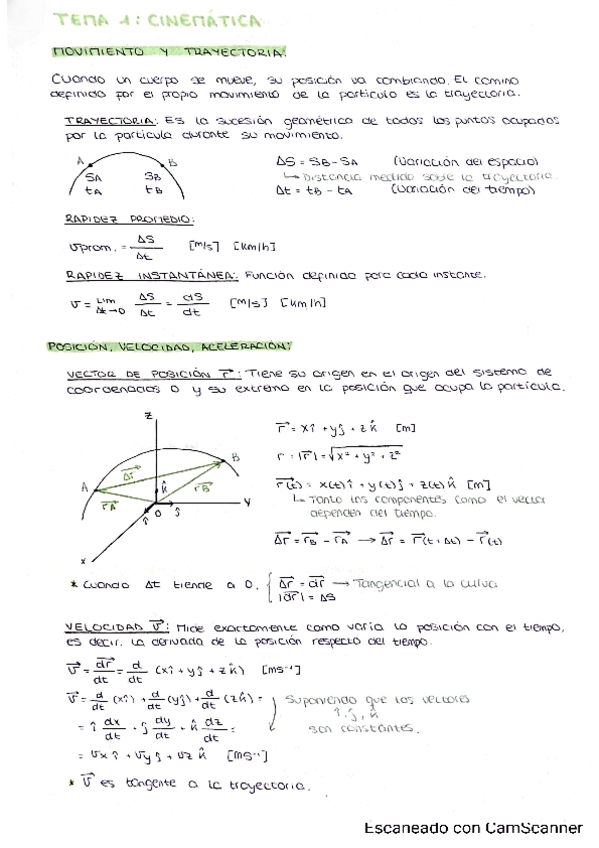 TEMA 1: CINEMÁTICA
MOVIMIENTO Y TRAYECTORIA:
Cuando un cuerpo se mueve, su posición va cambiando. El camino
definido por el propio movimiento de la partícula es la trayectoria.
TRAYECTORIA: Es la sucesión geométrica de todos los puntos ocupados
por la partícula durante su movimiento.
A B
SA SB
tA tB
ΔS = SB - SA (Variación del espacio)
↳ Distancia medida sobre la trayectoria.
Δt = tB - tA (Variación del tiempo)
RAPIDEZ PROMEDIO:
vprom. = ΔS/Δt [m/s] [km/h]
RAPIDEZ INSTANTÁNEA: Función definida para cada instante.
v = Lim Δt→0 ΔS/Δt = dS/dt [m/s] [km/h]
POSICIÓN, VELOCIDAD, ACELERACIÓN:
VECTOR DE POSICIÓN r⃗: Tiene su origen en el origen del sistema de
coordenadas O y su extremo en la posición que ocupa la partícula.
z
A B
Δr⃗
r⃗A r⃗B
k̂
î O ĵ
y
x
r⃗ = xî + yĵ + zk̂ [m]
r = |r⃗| = √x² + y² + z²
r⃗(t) = x(t)î + y(t)ĵ + z(t)k̂ [m]
↳ Tanto los componentes como el vector
dependen del tiempo.
Δr⃗ = r⃗B - r⃗A → Δr⃗ = r⃗(t + Δt) - r⃗(t)
* Cuando Δt tiende a 0, { Δr⃗ = dr⃗ → Tangencial a la curva
|dr⃗| = ΔS
VELOCIDAD v⃗: Mide exactamente como varía la posición con el tiempo,
es decir, la derivada de la posición respecto del tiempo.
v⃗ = dr⃗/dt = d/dt (xî + yĵ + zk̂) [ms⁻¹]
v⃗ = d/dt (xî) + d/dt (yĵ) + d/dt (zk̂) = Suponiendo que los vectores
î, ĵ, k̂
= î dx/dt + ĵ dy/dt + k̂ dz/dt = son constantes.
= vx î + vy ĵ + vz k̂ [ms⁻¹]
* v⃗ es tangente a la trayectoria.
Escaneado con CamScanner